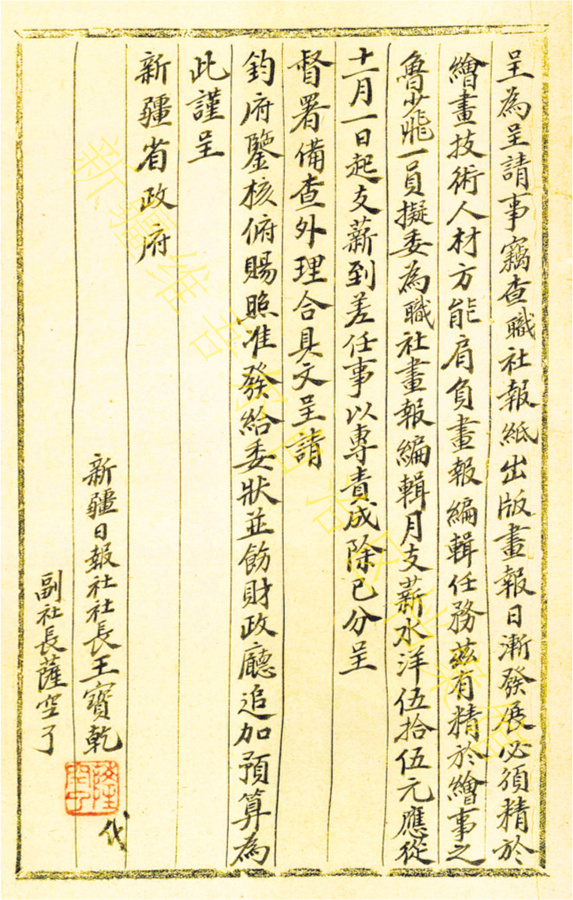 呈為呈請事竊查職社報紙出版畫報日漸發展必須精於
繪畫技術人材方能肩負畫報編輯任務茲有精於繪事之
魯少飛一員擬委為職社畫報編輯月支薪水洋伍拾伍元應從
十一月一日起支薪到差任事以專責成除已分呈
督署備查外理合具文呈請
鈞府鑒核俯賜照准發給委狀並飭財政廳追加預算為
此謹呈
新疆省政府
新疆日報社社長王寶乾
副社長薩空了
代
薩空了